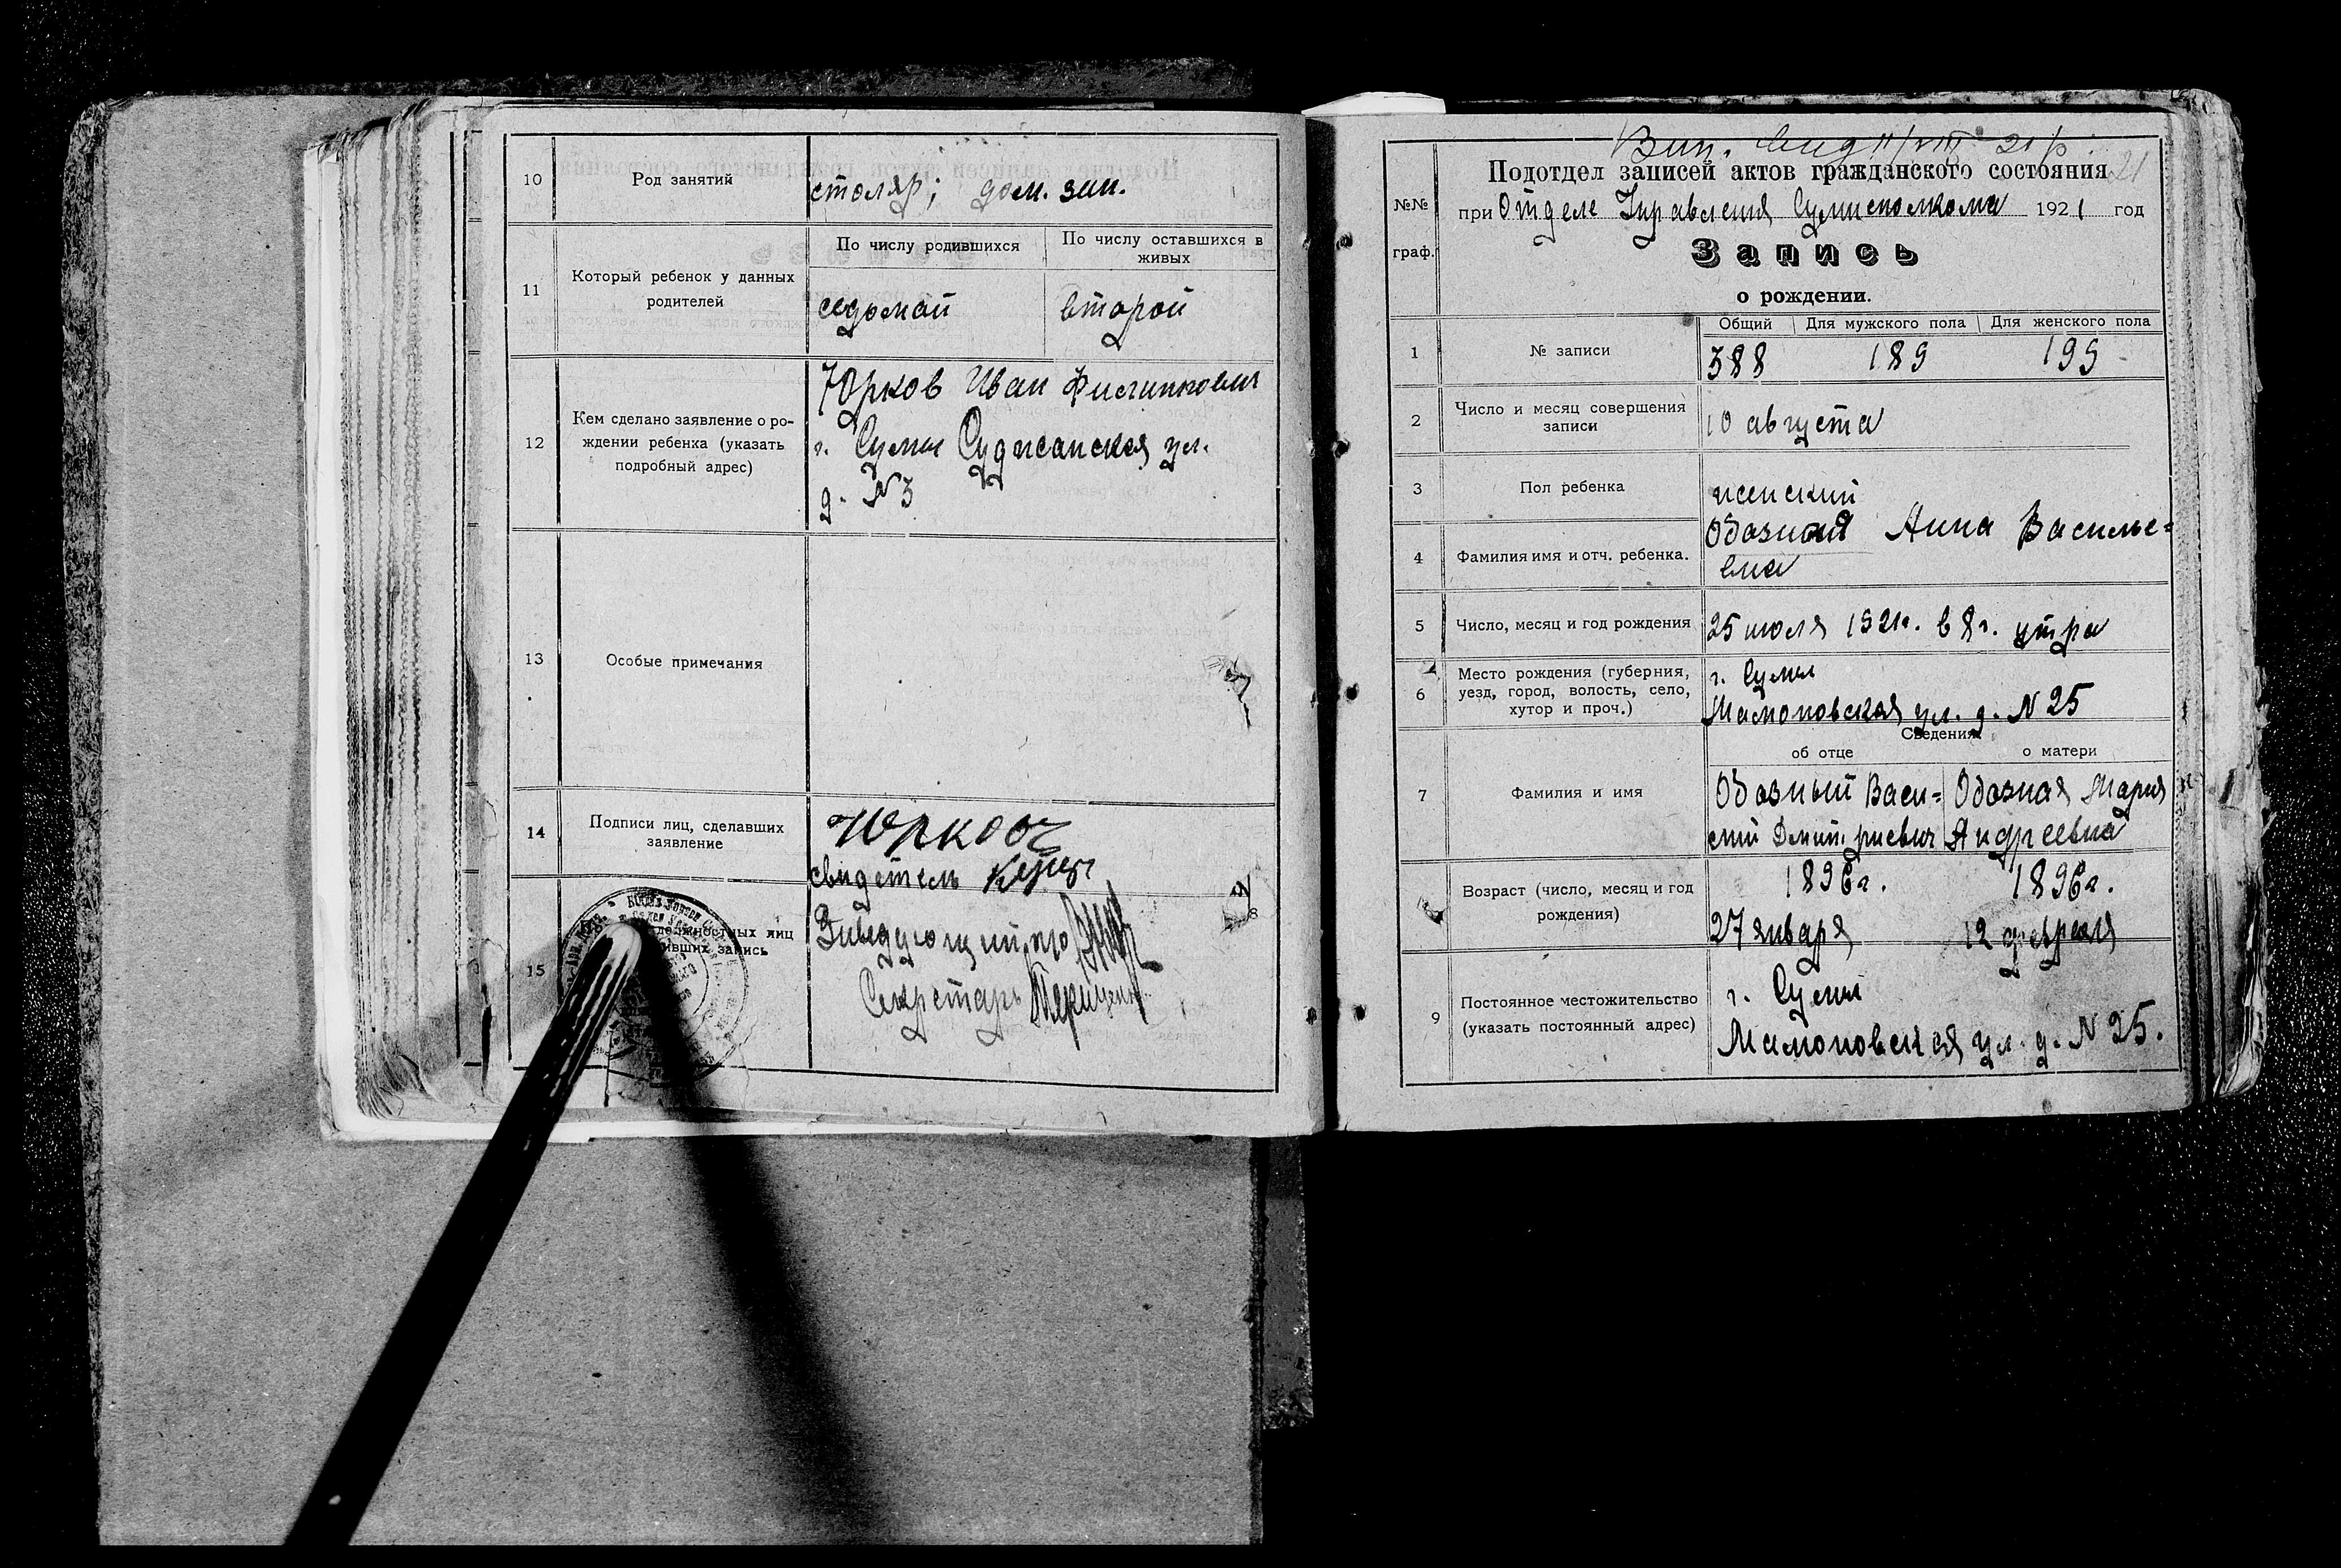 10
Род занятий
столяр; дом. зан.
11
Который ребенок у данных
родителей
По числу родившихся
По числу оставшихся в
живых
седьмой
второй
12
Кем сделано заявление о ро-
ждении ребенка (указать
подробный адрес)
Юрков Иван Филиппович
г. Сумы Суджанская ул.
д. № 3
13
Особые примечания
14
Подписи лиц, сделавших
заявление
Юрков
свидетель
15
должностных лиц
ивших запись
Заведующий п/о
Секретарь
№№
граф.
Подотдел записей актов гражданского состояния
21
при Отделе Управления Сумисполкома 1921 год
Запись
о рождении.
1
№ записи
Общий
Для мужского пола
Для женского пола
388
189
199
2
Число и месяц совершения
записи
10 августа
3
Пол ребенка
женский
4
Фамилия имя и отч. ребенка.
Обозная Анна Василье-
вна
5
Число, месяц и год рождения
25 июля 1921г. в 8 ч. утра
6
Место рождения (губерния,
уезд, город, волость, село,
хутор и проч.)
г. Сумы
Мамоновская ул. д. № 25
Сведения
об отце
о матери
7
Фамилия и имя
Обозный Васи-
лий Дмитриевич
Обозная Мария
Андреевна
Возраст (число, месяц и год
рождения)
8
1896г.
27 января
1896г.
12 февраля
9
Постоянное местожительство
(указать постоянный адрес)
г. Сумы
Мамоновская ул. д. № 25.